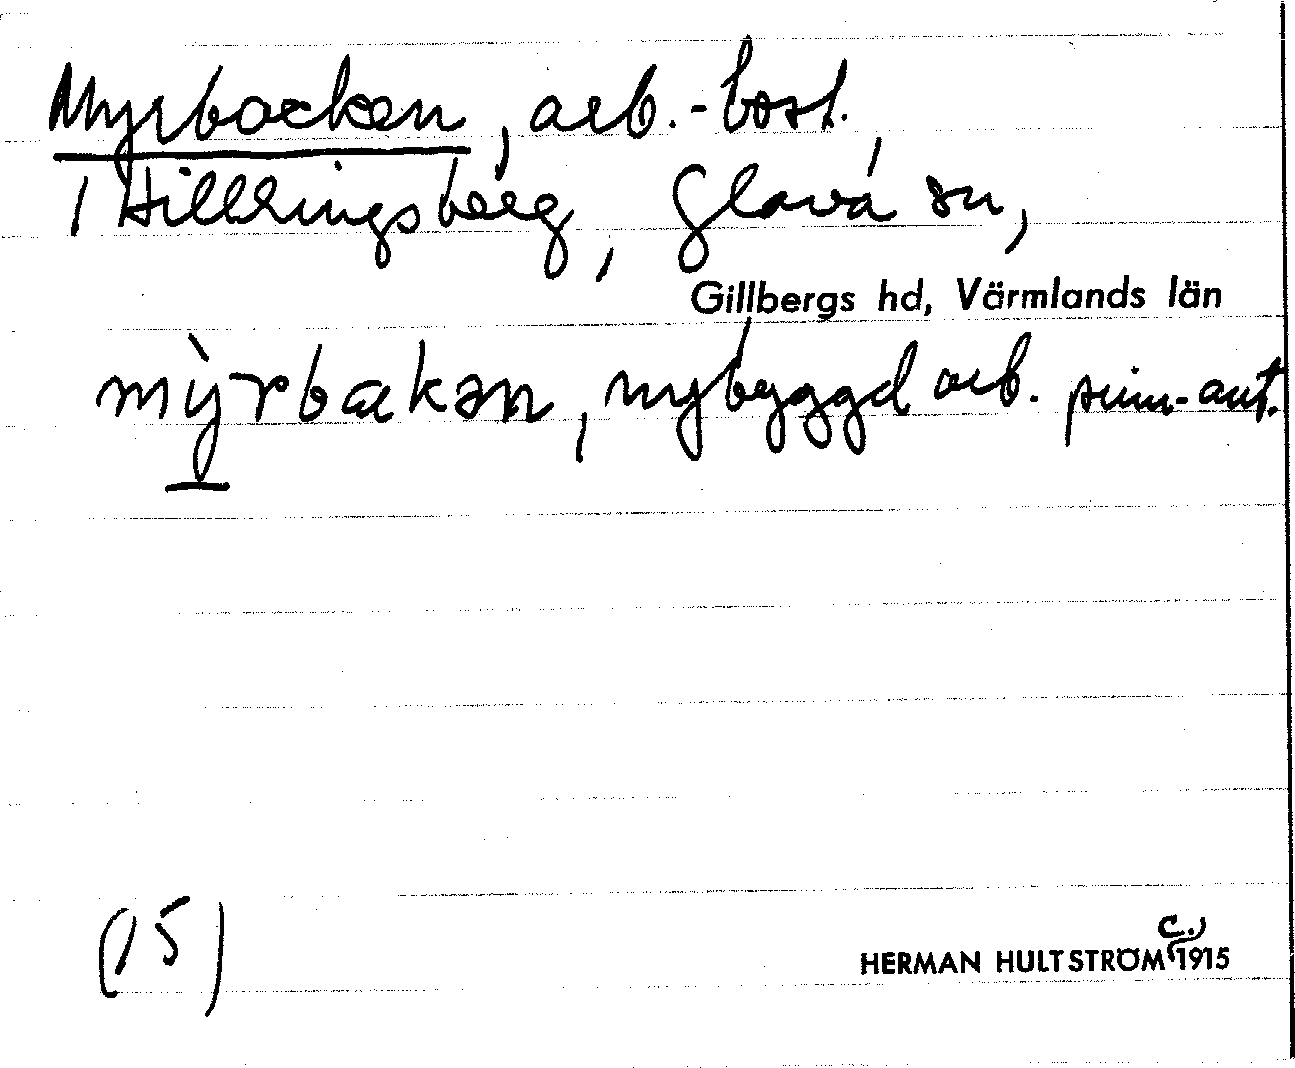 Myrbacken, arb.-bost.,
/ Hillringsberg, Glava sn,
Gillbergs hd, Värmlands län
mỳrbakən, nybyggd arb.
(15)
C.)
HERMAN HULTSTRÖM 1915